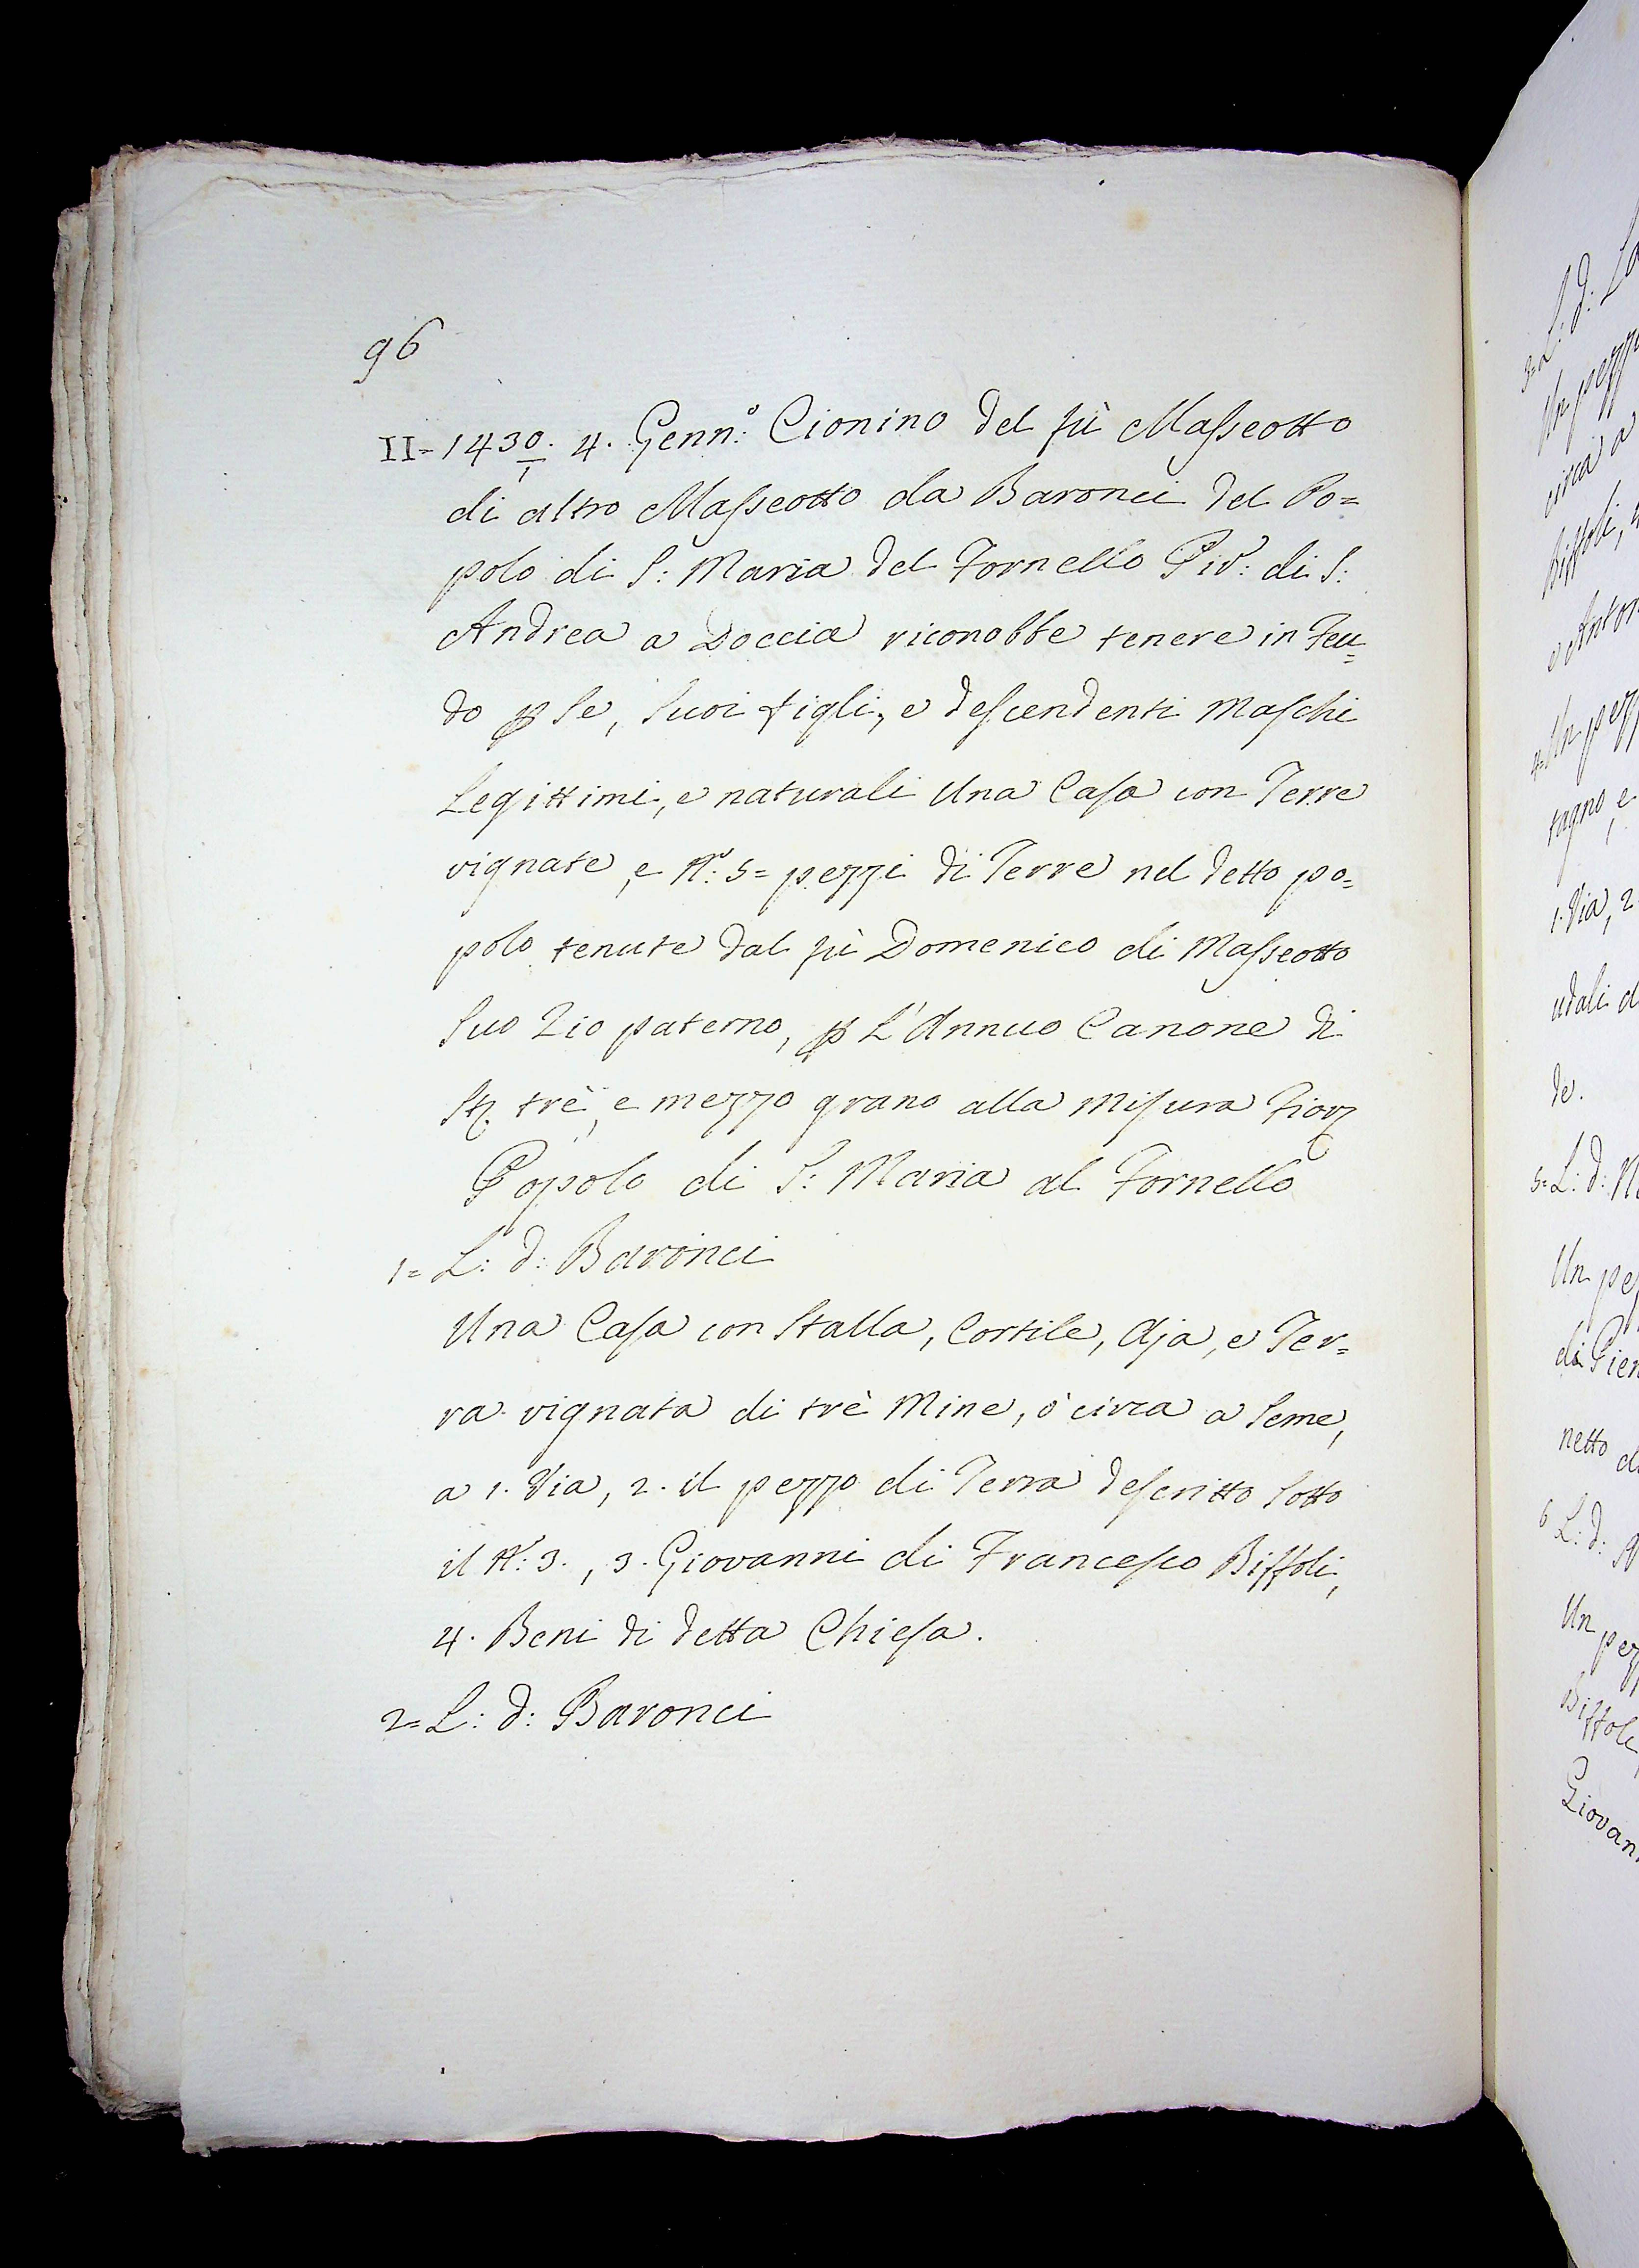 96
II= 1430/1. 4. Genn:º Cionino del fù Masseotto
di altro Masseotto da Baronci del Po=
polo di S: Maria del Fornello Piv: di S:
Andrea a Doccia riconobbe tenere in Feu=
do p Se, Suoi figli, e descendenti Maschi
Legittimi, e naturali Una Casa con Terre
vignate, e N:º 5= pezzi di Terre nel detto po=
polo tenute dal fù Domenico di Masseotto
Suo Zio paterno, p L'Annuo Canone di
St. trè, e mezzo grano alla Misura Fior.
Popolo di S: Maria al Fornello
1= L: d: Baronci
Una Casa con Stalla, Cortile, Aja, e Ter=
ra vignata di trè Mine, ò circa a Seme,
a 1. Via, 2. il pezzo di Terra descritto Sotto
il N:º 3., 3. Giovanni di Francesco Biffoli,
4. Beni di detta Chiesa.
2= L: d: Baronci
3= L: d: La
Un pezzo
circa a
Biffoli,
e Anton
4= Un pezz
tagno, e
1. Via, 2
udali d
de.
5= L: d:
Un pe
di Pier
netto d
6 L: d:
Un pez
Biffoli
Giovan